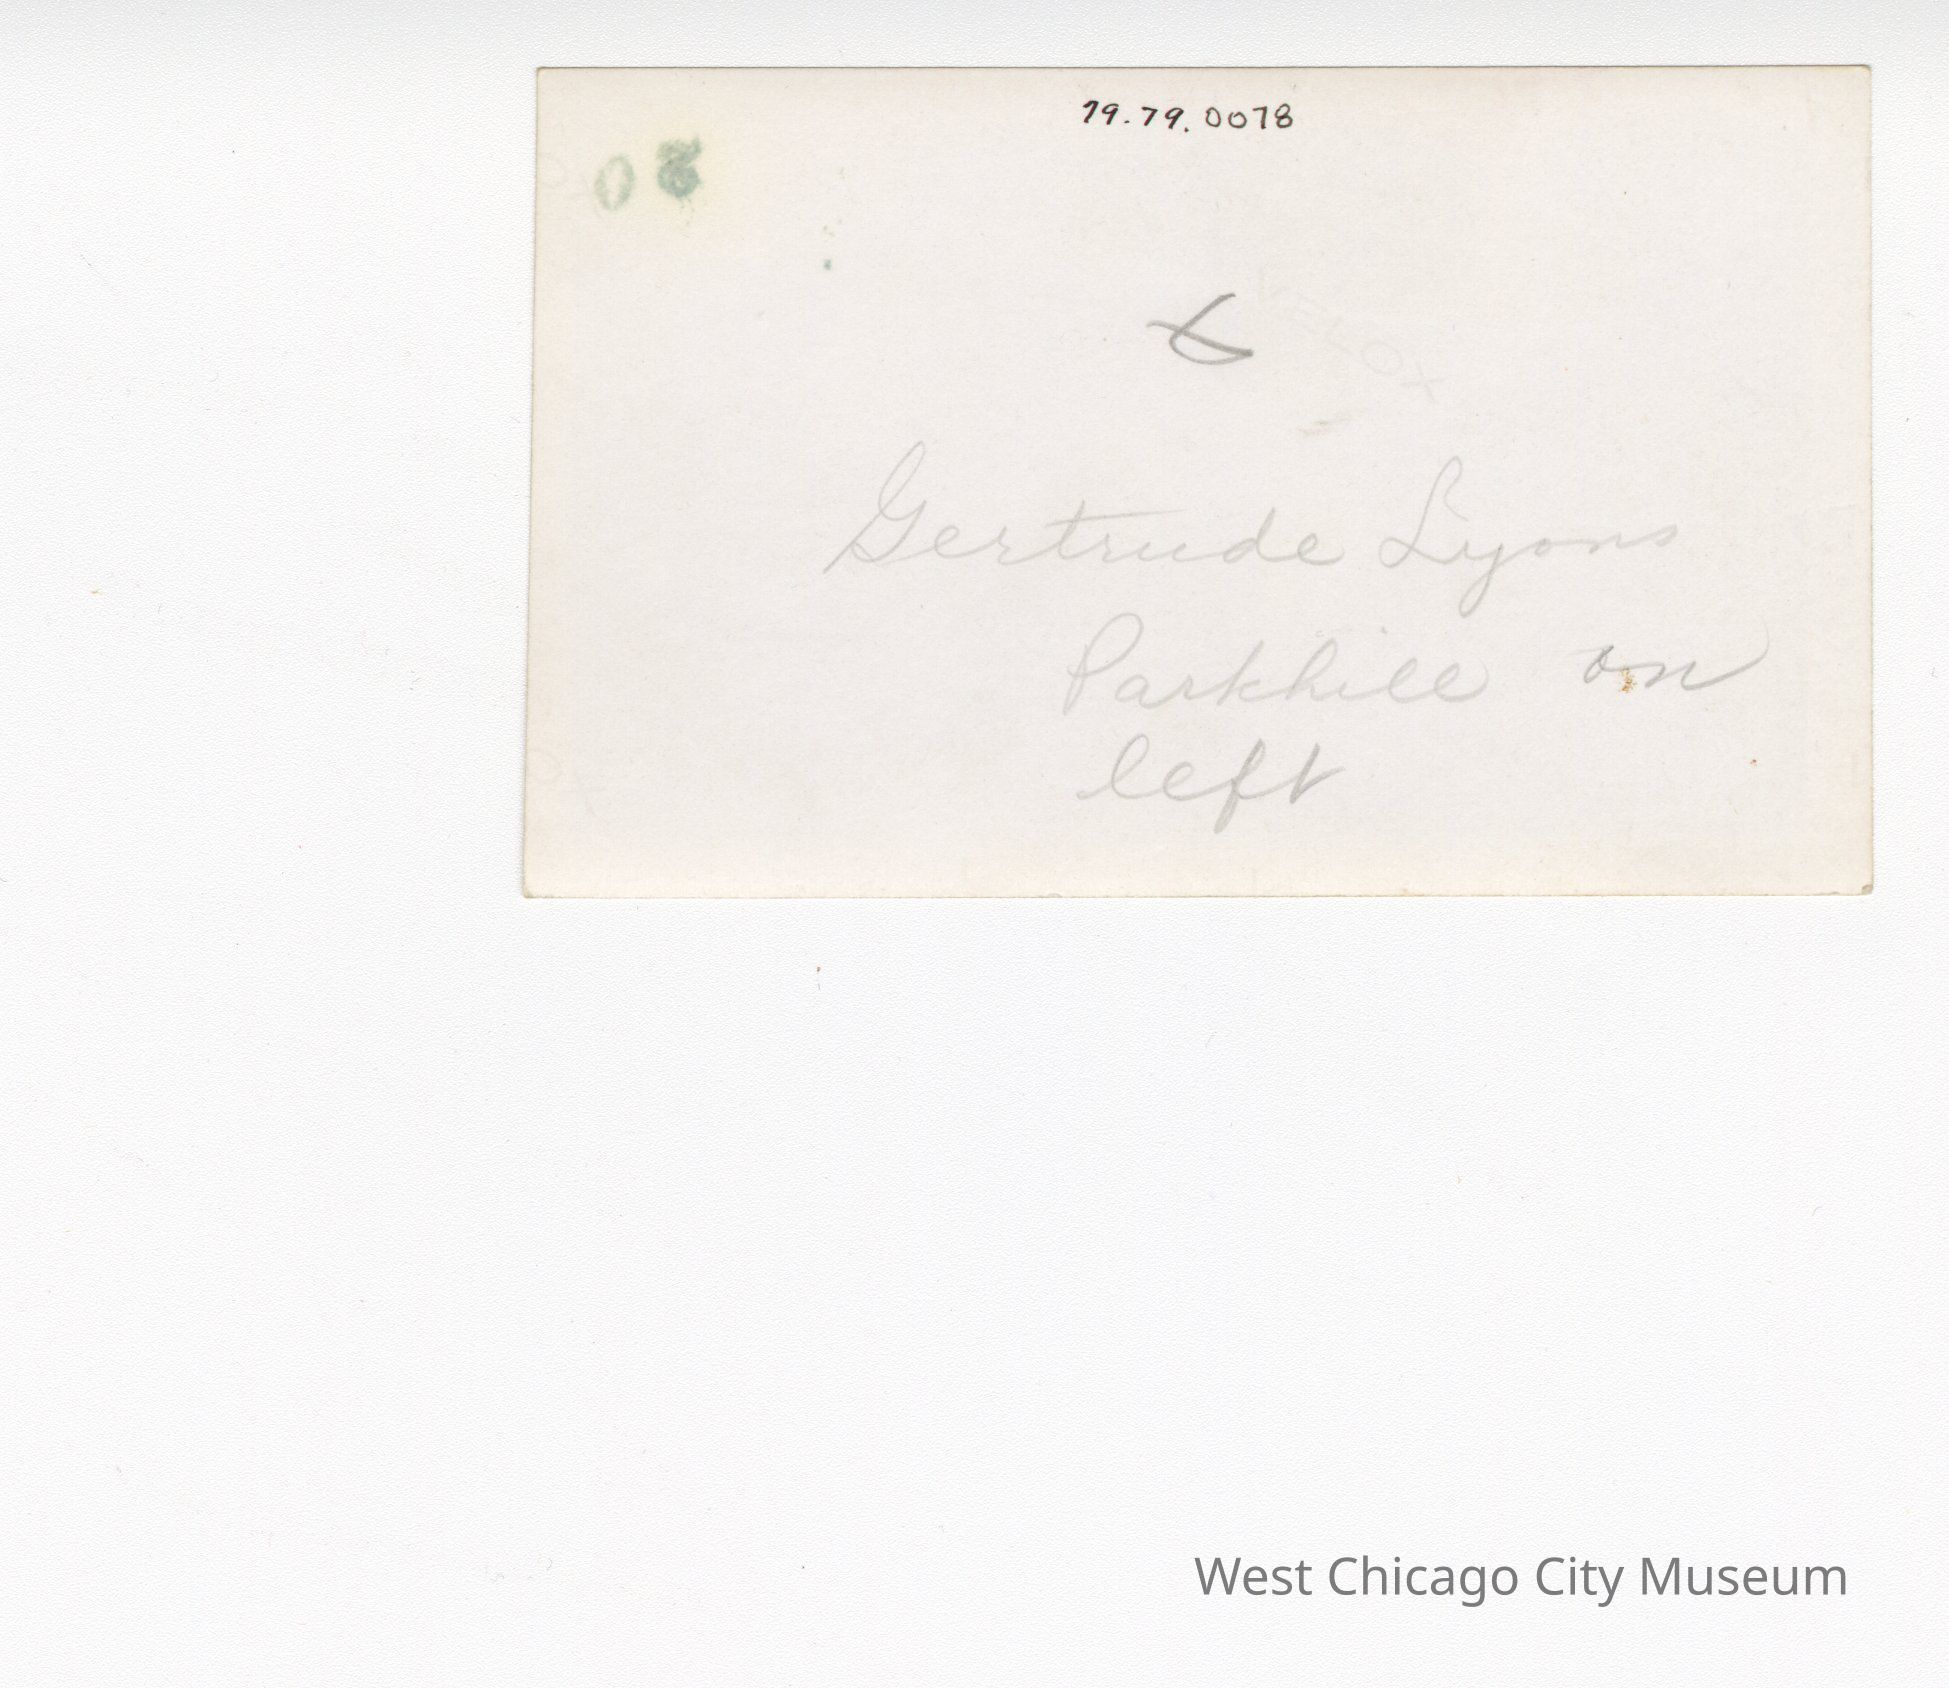 79.79.0078
Gertrude Lyons
Parkhill on
left
West Chicago City Museum